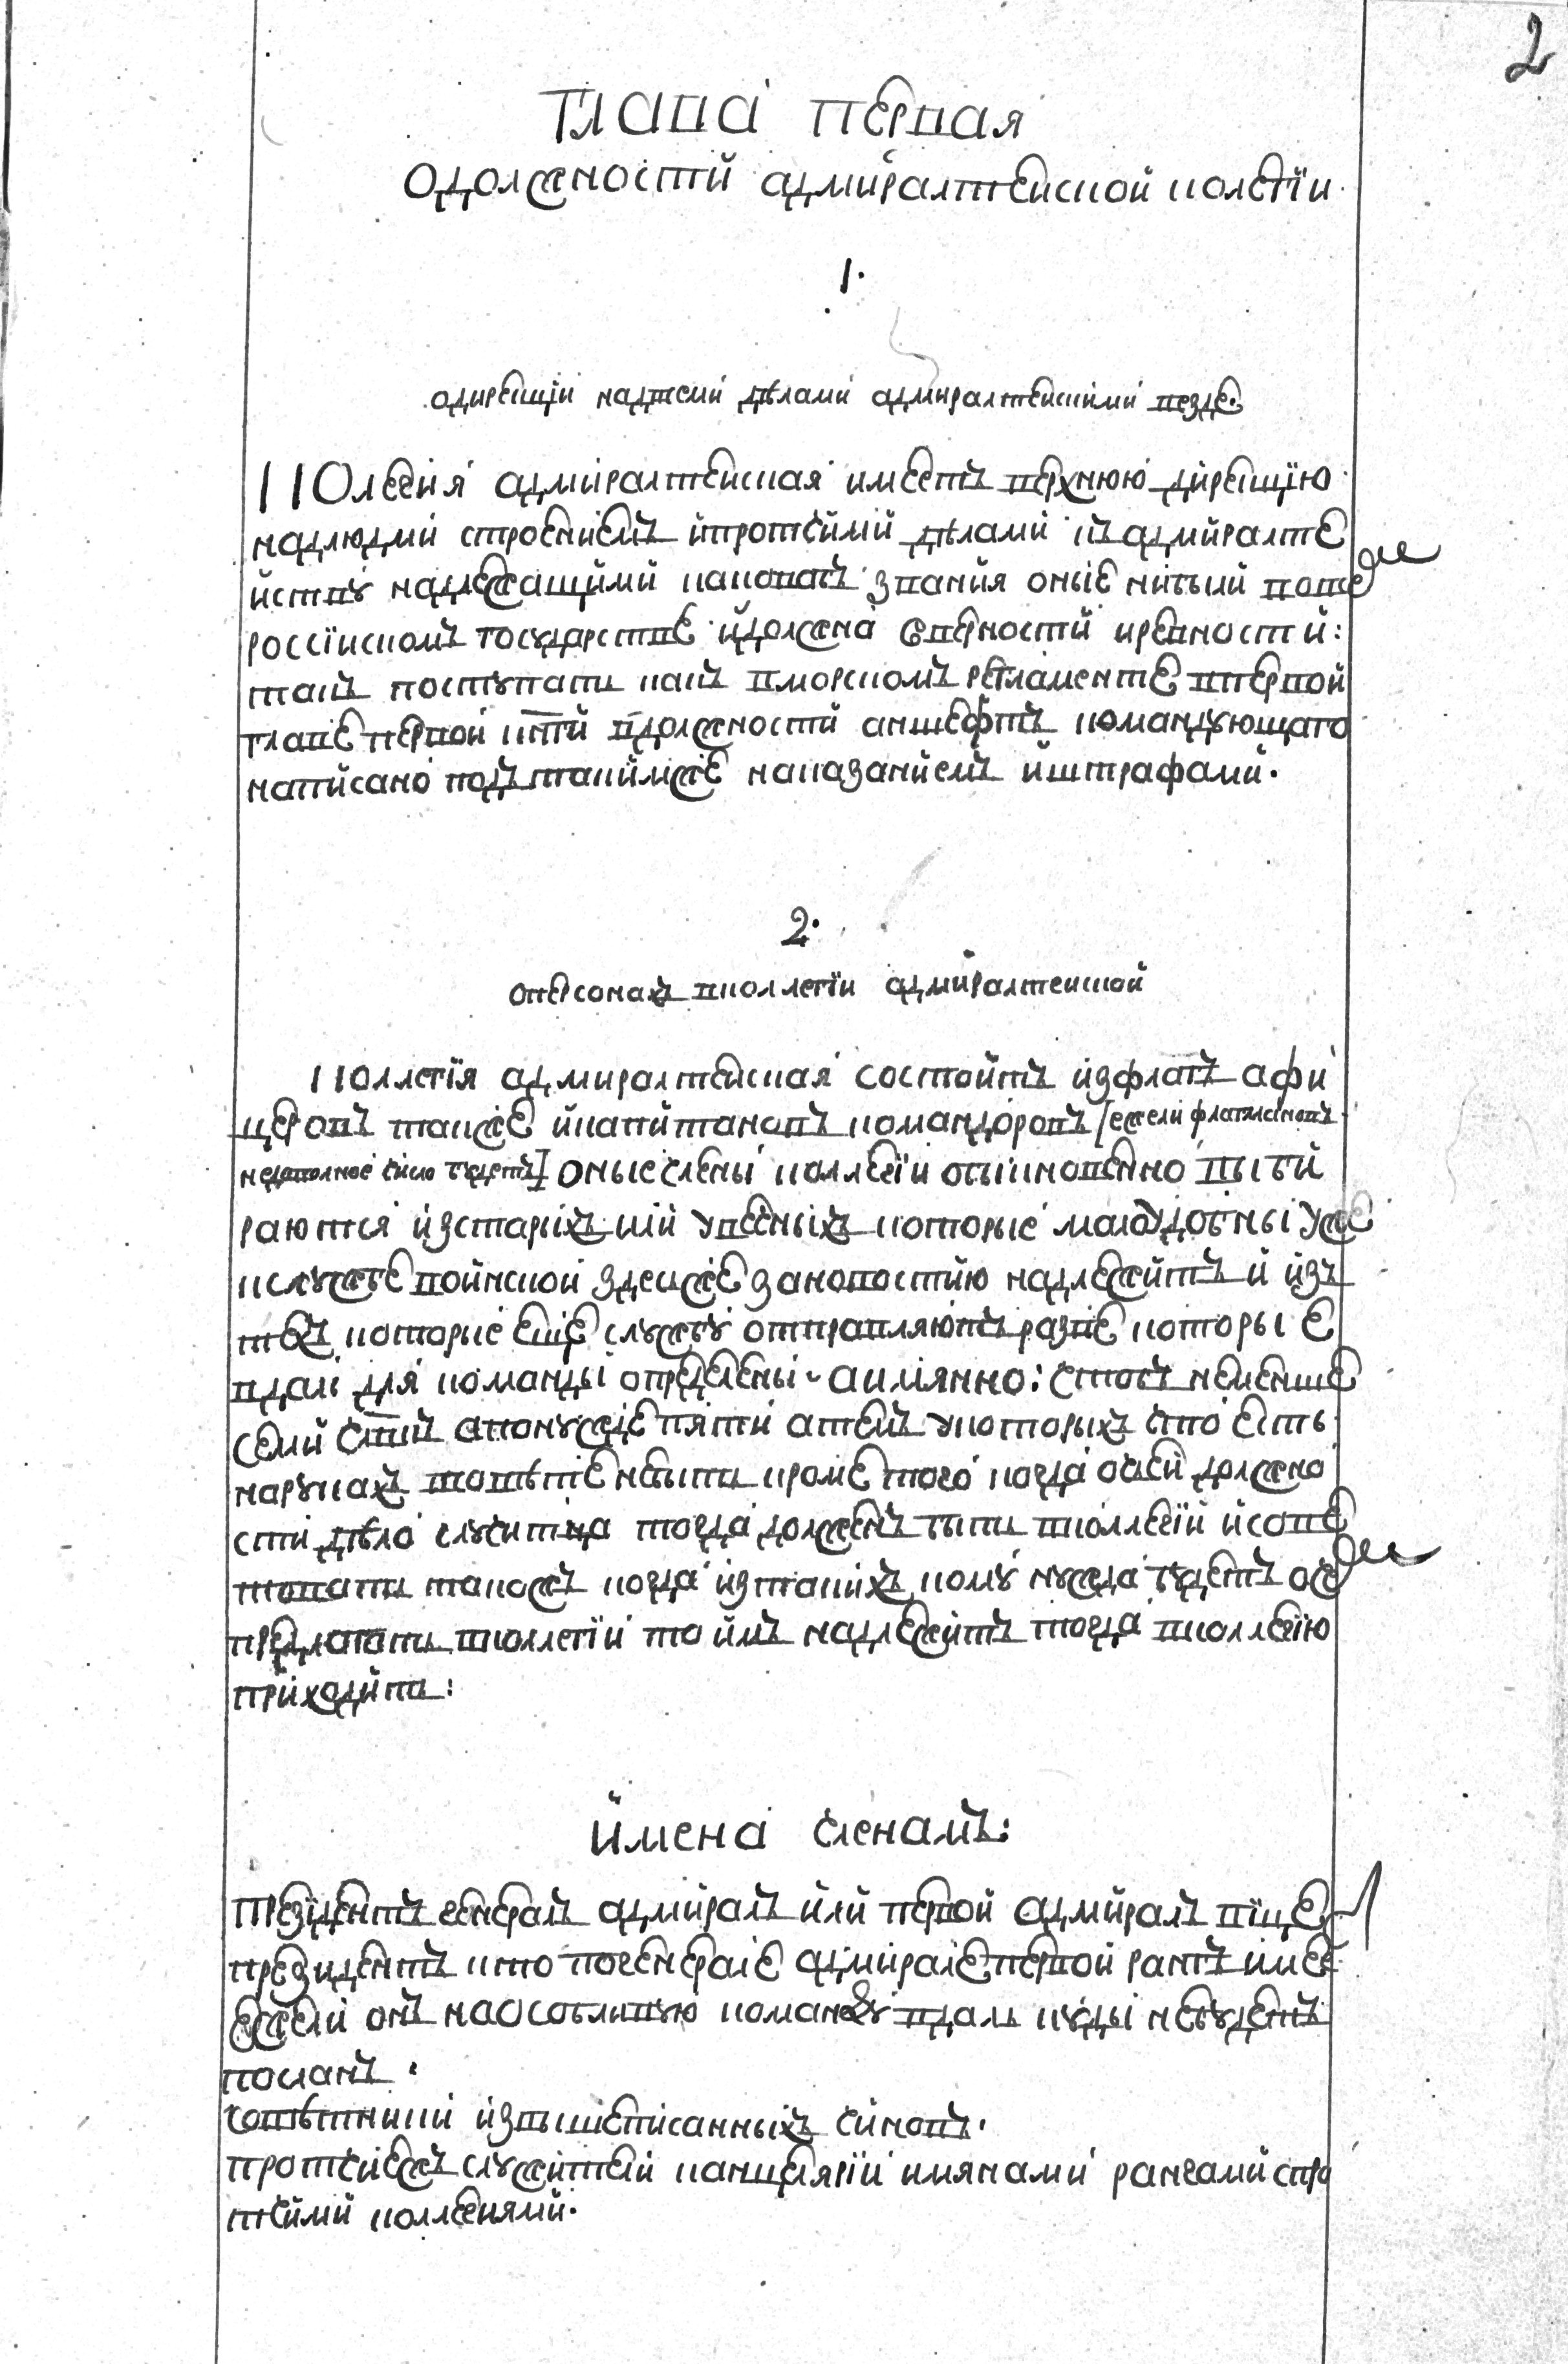 2
Глава первая
одолжности адмиралтейской колегїи
1.
одирекции надвсеми дѣлами адмиралтейскими везде.
Колегия адмиралтейская имеетъ верхнюю дирекцїю
надлюдми строениемъ ипротчими дѣлами къ адмиралте
йству надлежащими каковаъ звания оные нибыли вовсе
россїйскомъ государстве идолжна верности иревности:
такъ поступати какъ вморскомъ регламенте впервой
главе первой кнги вдолжности аншефтъ командующаго
написано подътакимже наказаниемъ иштрафами.
2.
оперсонахъ вколлегїи адмиралтейской
Коллегїя адмиралтейская состоитъ изфлагъ афи
церовъ также икапитановъ командоровъ [ежели флагмановъ
недовольное число будетъ] оные члены коллегїи обыкновенно выби
раются изстарыхъ или увечныхъ которые малоудобны уже
кслужбе воинской здеже заповостию надлежитъ и изъ
техъ которые еще службу отправляютъ разве которые
вдаль для команды определены. аимянно: чтобъ неменше
семи члнвъ апонужде пяти атемъ укоторыхъ что есть
наруках вовѣте небыти кроме того когда оъсей должно
сти дѣло случитца тогда долженъ быти вколлегїи исове
товати такожъ когда изтакихъ кому нужда будетъ ое
предлагати вколлегїи то имъ надлежитъ тогда вколлегїю
приходити:
имена членамъ:
Президентъ генералъ адмиралъ или первой адмиралъ вїце
президентъ кто погенерале адмирале первой рангъ имее
ежели онъ наособливую команду вдаль куды небудетъ
посланъ.
совѣтники извышеписанныхъ чиновъ.
протчиежъ служители канцелярїи имянами рангами спро
тчими коллегиями.